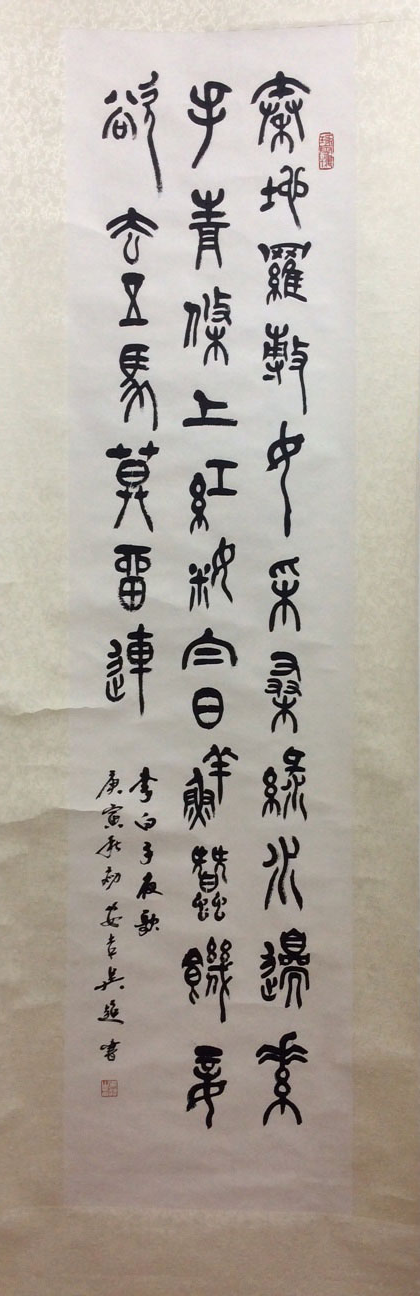 秦地羅敷女采桑綠水邊素
手青條上紅籹白日鮮蠶饑妾
欲去五馬莫畱連
李白子夜歌
庚寅秋初安吉吳書